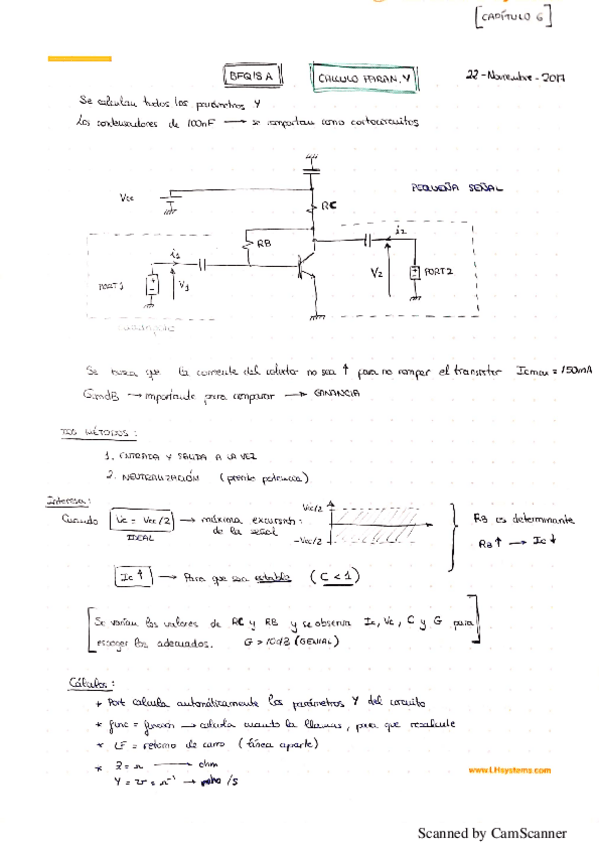 [CAPÍTULO 6]
BFQ18A
CALCULO PARAM. Y
22-Noviembre-2017
Se calculan todos los parámetros Y
Los condensadores de 100nF → se comportan como cortocircuitos
PEQUEÑA SEÑAL
Vcc
RC
RB
i1
i2
PORT1
V1
V2
PORT2
cuadripolo
Se busca que la corriente del colector no sea ↑ para no romper el transistor Icmax = 150mA
GmdB → importante para comparar → GANANCIA
MÉTODOS:
1. ENTRADA Y SALIDA A LA VEZ
2. NEUTRALIZACIÓN (pierde potencia)
Interesa:
Cuando Vc = Vcc/2 → máxima excursión de la señal
IDEAL
Vcc/2
-Vcc/2
RB es determinante
RB↑ → Ic↓
Ic↑ → Para que sea estable (C < 1)
[Se varían los valores de RC y RB y se observa Ic, Vc, C y G para
escoger los adecuados. G > 10dB (GENIAL)]
Cálculos:
* Port calcula automáticamente los parámetros Y del circuito
* func = función → calcula cuando la llamas, para que recalcule
* LF = retorno de carro (línea aparte)
* Z = Ω → ohm
Y = ℧ = Ω⁻¹ → mho /S
www.LHsystems.com
Scanned by CamScanner